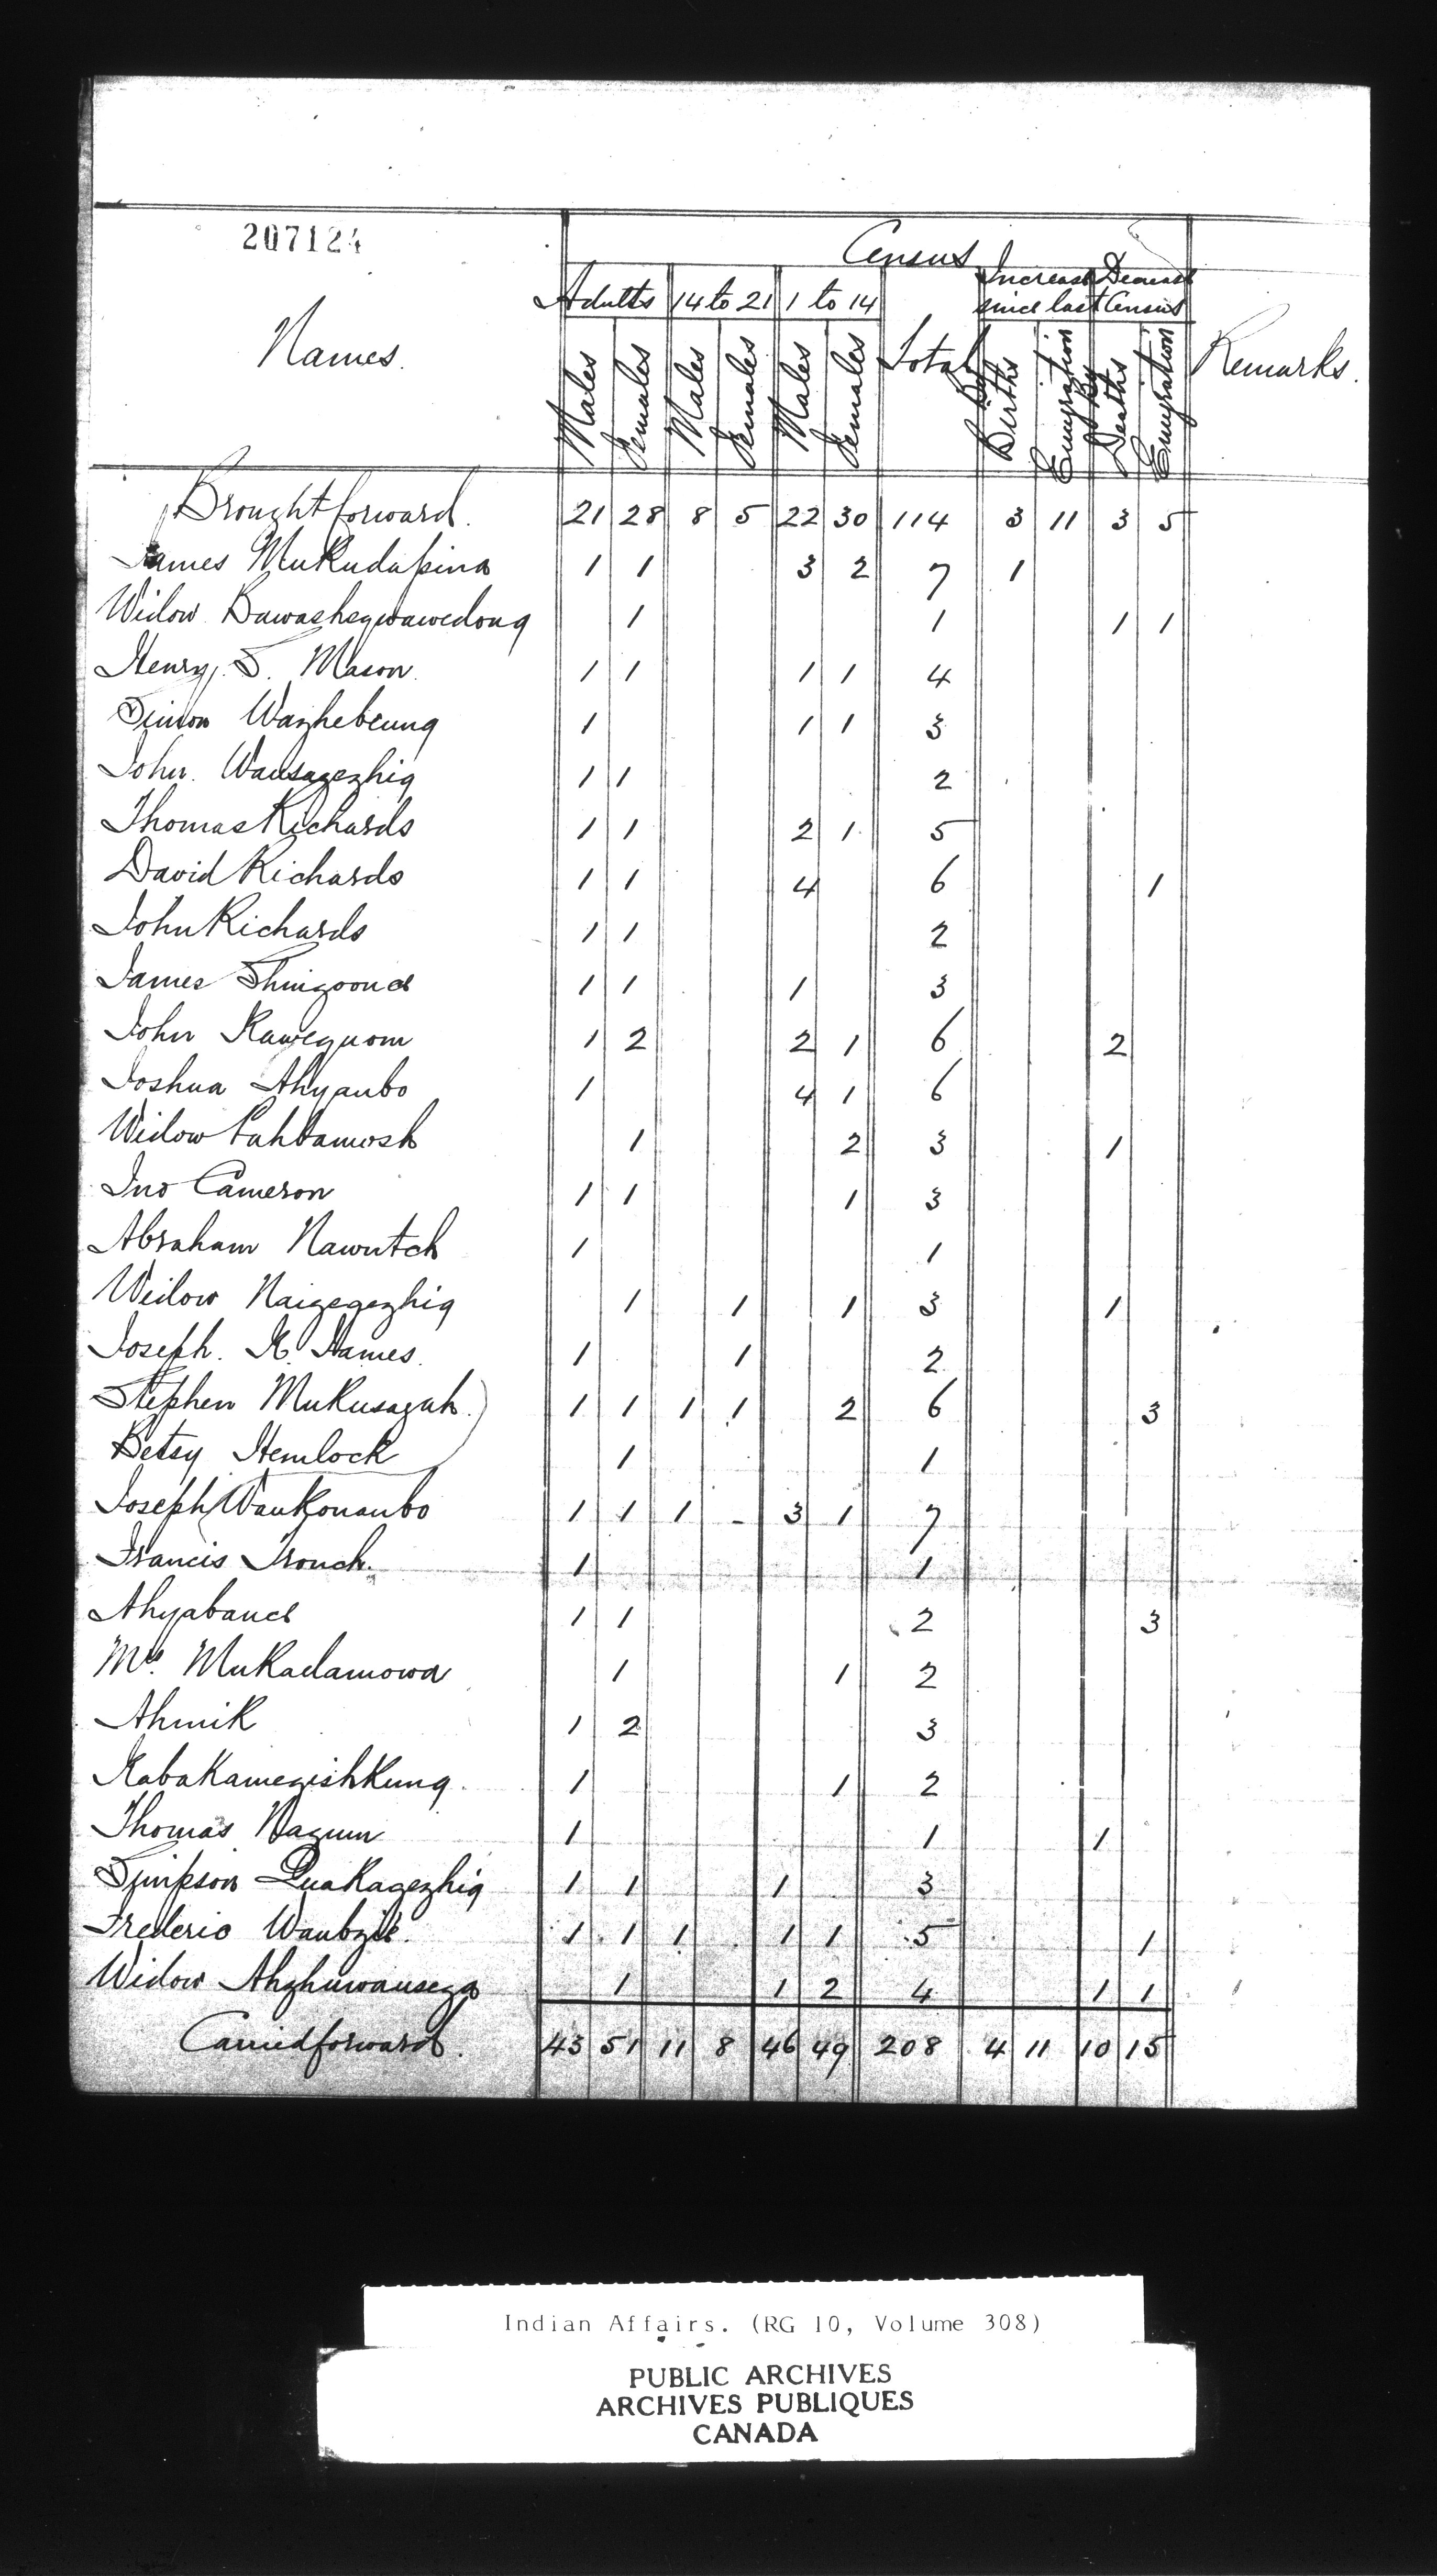 207124
Census
Increase Decrease
Adults 14 to 21 1 to 14 since last Census
Names. Total Remarks.
Males Females Males Females Males Females By Births Emigration By Deaths Emigration
Brought forward. 21 28 8 5 22 30 114 3 11 3 5
James Mukudapina 1 1 3 2 7 1
Widow Bawashegwawedong 1 1 1 1
Henry S. Mason 1 1 1 1 4
Simon Wazhebeung 1 1 1 3
John Wausagezhig 1 1 2
Thomas Richards 1 1 2 1 5
David Richards 1 1 4 6 1
John Richards 1 1 2
James Shingoonce 1 1 1 3
John Kawequom 1 2 2 1 6 2
Joshua Ahyanbo 1 4 1 6
Widow Pahbamosh 1 2 3 1
Jno Cameron 1 1 1 3
Abraham Nawutch 1 1
Widow Naizegezhig 1 1 1 3 1
Joseph. K. James. 1 1 2
Stephen Mukusagah.) 1 1 1 1 2 6 3
Betsy Hemlock 1 1
Joseph Waukonaubo 1 1 1 - 3 1 7
Francis Trouch. 1 1
Ahyabance 1 1 2 3
Mrs. Mukadamowa 1 1 2
Ahmik 1 2 3
Kabakamegishkung. 1 1 2
Thomas Nagum 1 1 1
Simpson Quakagezhig 1 1 1 3
Frederic Waubzee. 1 1 1 1 1 5 1
Widow Ahzhuwausega 1 1 2 4 1 1
Carried forward. 43 51 11 8 46 49 208 4 11 10 15
Indian Affairs. (RG 10, Volume 308)
PUBLIC ARCHIVES
ARCHIVES PUBLIQUES
CANADA